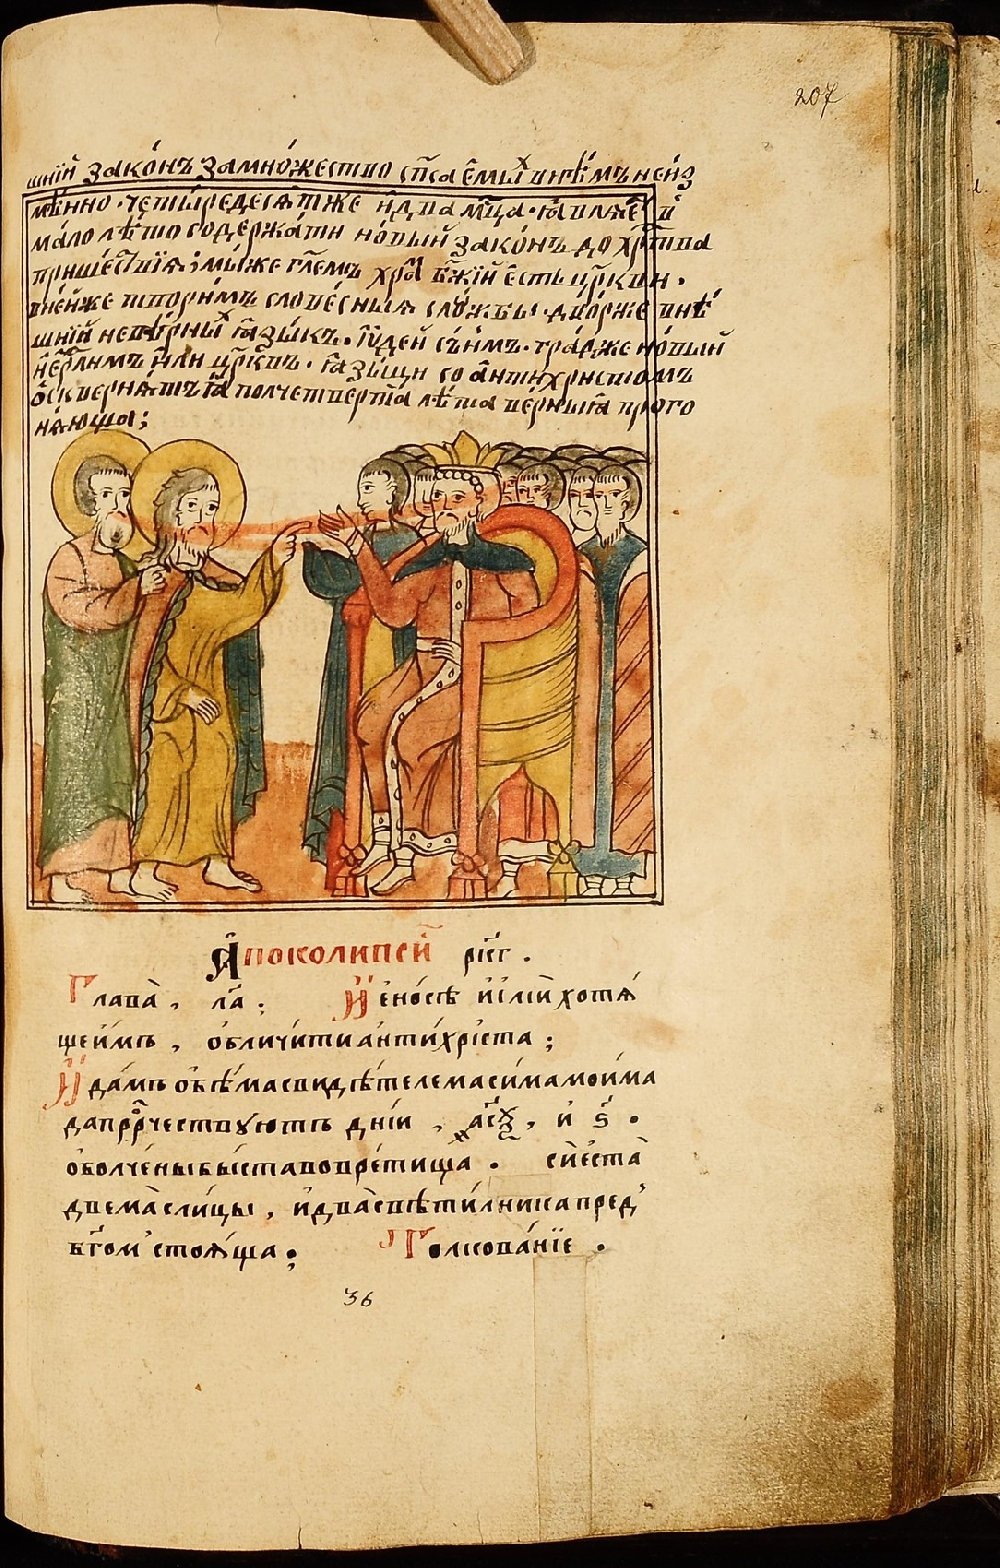 207
шнїй зако́нъ замно́жество сп҃са е́мыⷯ внѣ́мъ неиз̾
мѣ́нно. четы́редеся́тже и҆ два мцⷭ҇а. ꙗ҆вля́е
ма́ло лѣ́то содержа́ти но́вый зако́нъ до хрⷭ҇това
прише́ствїѧ; мы́же гл҃емъ хра бж҃їй є҆́сть цр҃кви.
вне́йже творимъ слове́сныѧ слу́жбы. дво́рже внѣ́
шнїй невѣ́рныⷯ ꙗ҆зы́къ. і҆ꙋде́й со́нмъ. гра́дже но́вый
і҆ерⷭ҇ли́мъ и҆́ли цр҃ковь. ꙗ҆зы́цы со а҆нтихристомъ
ѡ҆скверня́тъ полчетверта́ лѣ́та вѣ́рныѧ прого
ня́юща;
А҆поколипсі́й рн҃г.
Глава̀, л҃а; И҆ е҆но́сѣ и҆ и҆лїѝ хотѧ́
щеи́мъ, ѡ҆бличи́ти а҆нти́хрїста;
И҆ да́мъ ѻ҆бѣ́ма свидѣ́телема си́ма мои́ма
да прⷪ҇рчествꙋютъ дні́и, ҂а҃с, и҆ ѯ҃.
ѡ҆болче́ны бы́ста вовре́тища. сїѐ є҆ста̀
двѣ ма̀слицы, и҆ два̀ свѣти́лника пред̾
бг҃ом̾ стоѧ́ща. Толкова́нїе.
36